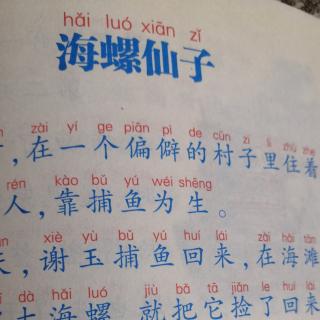 hǎi luó xiān zǐ
海螺仙子
zài yí ge piān pì de cūn zi lǐ zhù zhe
，在一个偏僻的村子里住着
rén kào bǔ yú wéi shēng
人，靠捕鱼为生。
xiè yù bǔ yú huí lái zài hǎi tān
，谢玉捕鱼回来，在海滩
dà hǎi luó jiù bǎ tā jiǎn le huí
大海螺，就把它捡了回来